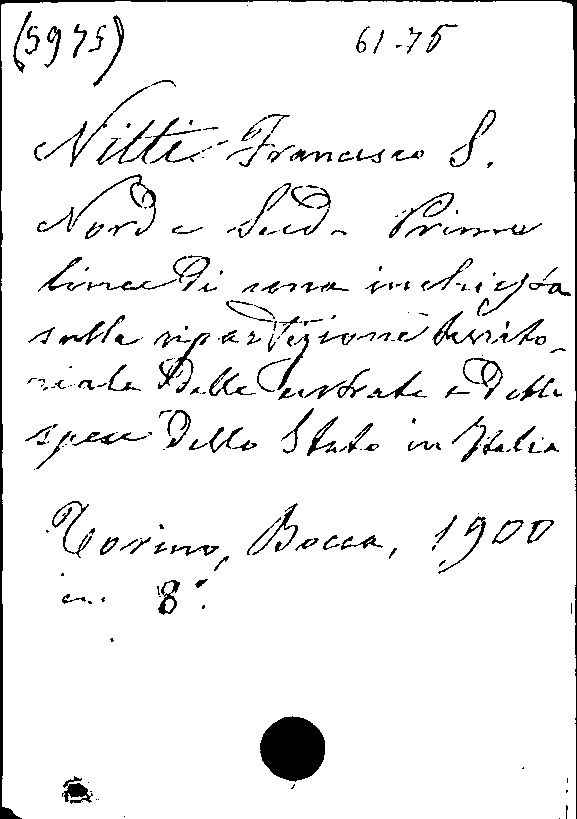 (5975) 61-75
Nitti Francesco S.
Nord e Sud - Prime
linee di una inchiesta
sulla ripartizione territo-
riale delle entrate e delle
spese dello Stato in Italia
Torino, Bocca, 1900
in 8°.